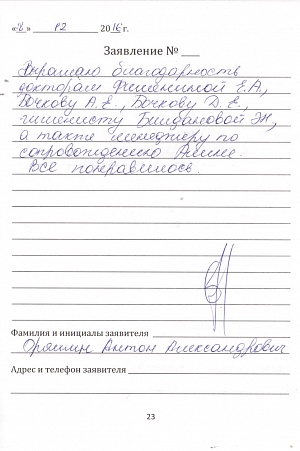 « 2 » 12 2016 г.
Заявление № ___
Выражаю благодарность
докторам Е.А.,
Бочкову А.Е., Бочкову Д.Е.,
гигиенисту Э.Н,
а также менеджеру по
сопровождению Амине.
Все понравилось.
Фамилия и инициалы заявителя
Оряшин Антон Александрович
Адрес и телефон заявителя
23